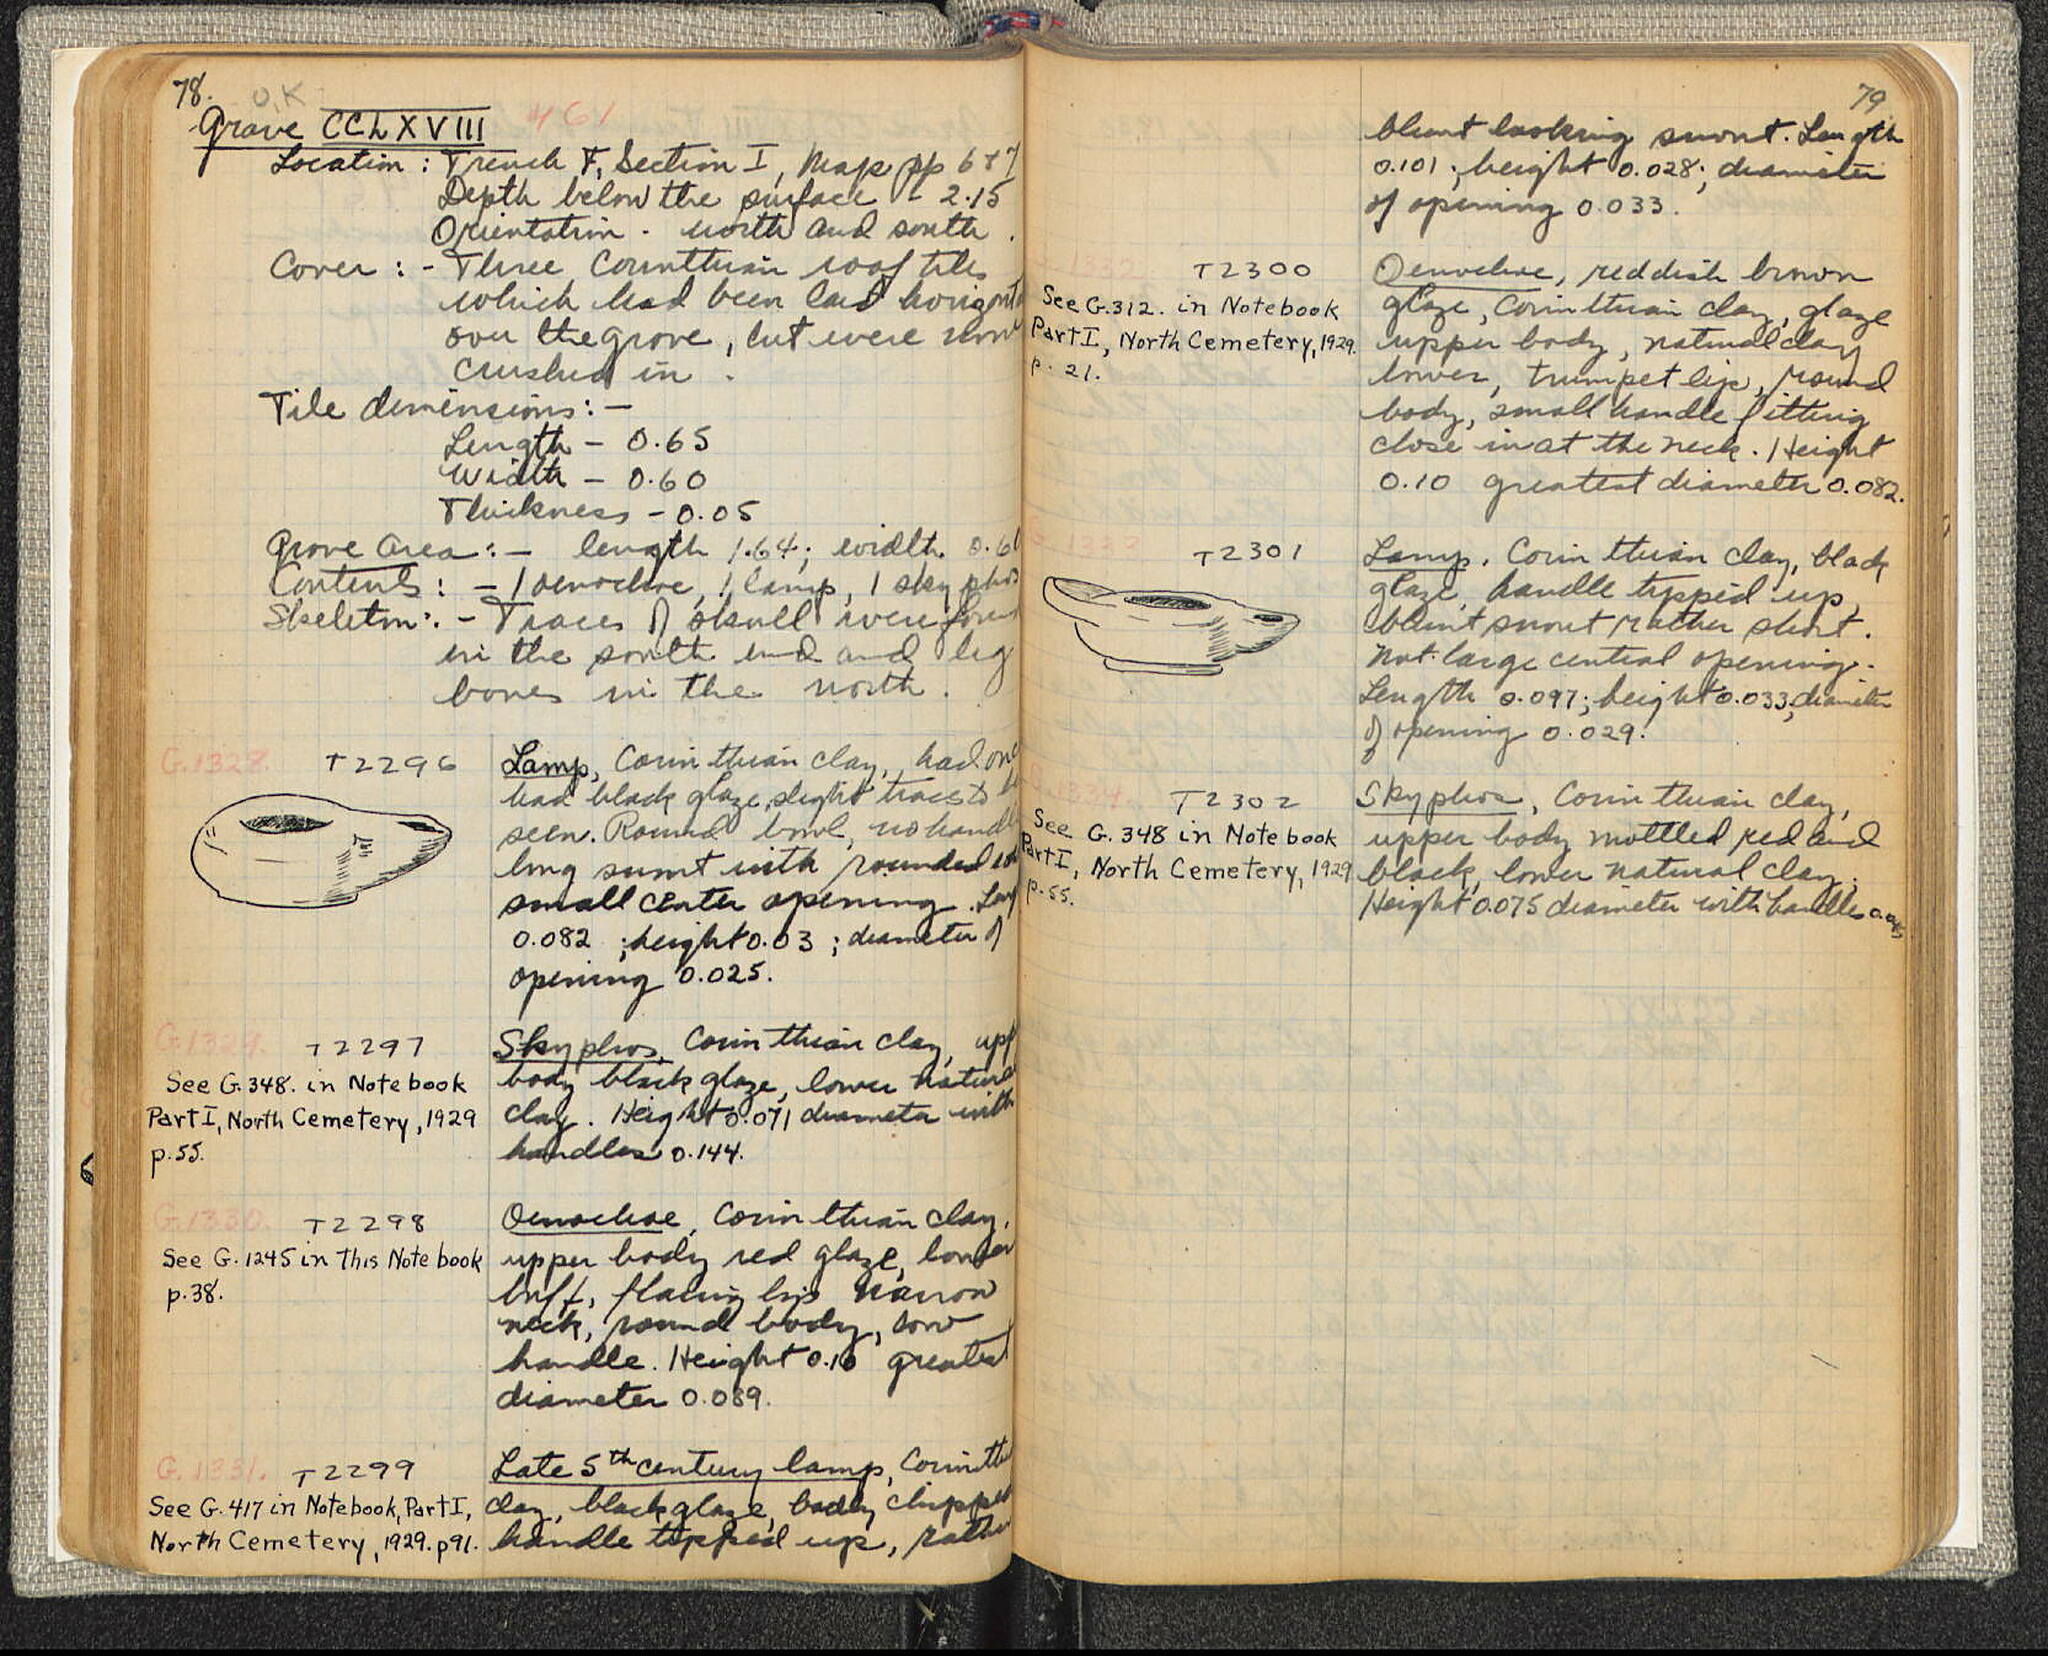 78.
O.K
Grave CCLXVIII 461
Location: Trench F, Section I, Map pp 6+7
Depth below the surface - 2.15
Orientation - north and south.
Cover: - Three Corinthian roof tiles
which had been laid
over the grave, but were
crushed in.
Tile dimensions: -
Length - 0.65
Width - 0.60
Thickness - 0.05
Grave Area: - length 1.64; width
Contents: - 1 oenochoe, 1 lamp, 1
Skeleton: - Traces of skull were
in the south end and leg
bones in the north.
G.1328. T2296
Lamp, Corinthian clay, had
had black glaze, slight traces to
seen. Round bowl, no
long snout with rounded
small center opening.
0.082; height 0.03; diameter of
opening 0.025.
G.1329. T2297
See G.348. in Notebook
Part I, North Cemetery, 1929
p.55.
Skyphos, Corinthian clay,
body black glaze, lower
clay. Height 0.071 diameter with
handles 0.144.
G.1330. T2298
See G.1245 in this Notebook
p.38.
Oenochoe, Corinthian clay,
upper body red glaze, lower
buff, flaring lip narrow
neck, round body, low
handle. Height 0.10 greatest
diameter 0.089.
G.1331. T2299
See G.417 in Notebook, Part I,
North Cemetery, 1929. p91.
Late 5th century lamp,
clay, black glaze, badly
handle tipped up, rather
79
blunt looking snout. Length
0.101; height 0.028; diameter
of opening 0.033.
T2300
See G.312. in Notebook
Part I, North Cemetery, 1929.
p. 21.
Oenochoe, reddish brown
glaze, Corinthian clay, glaze
upper body, natural clay
lower, trumpet lip, round
body, small handle fitting
close in at the neck. Height
0.10 greatest diameter 0.082.
T2301
Lamp, Corinthian clay, black
glaze, handle tipped up,
blunt snout rather short.
Not large central opening.
Length 0.097; height 0.033; diameter
of opening 0.029.
T2302
See G. 348 in Notebook
Part I, North Cemetery, 1929
p.55.
Skyphos, Corinthian clay,
upper body mottled red and
black, lower natural clay.
Height 0.075 diameter with handles